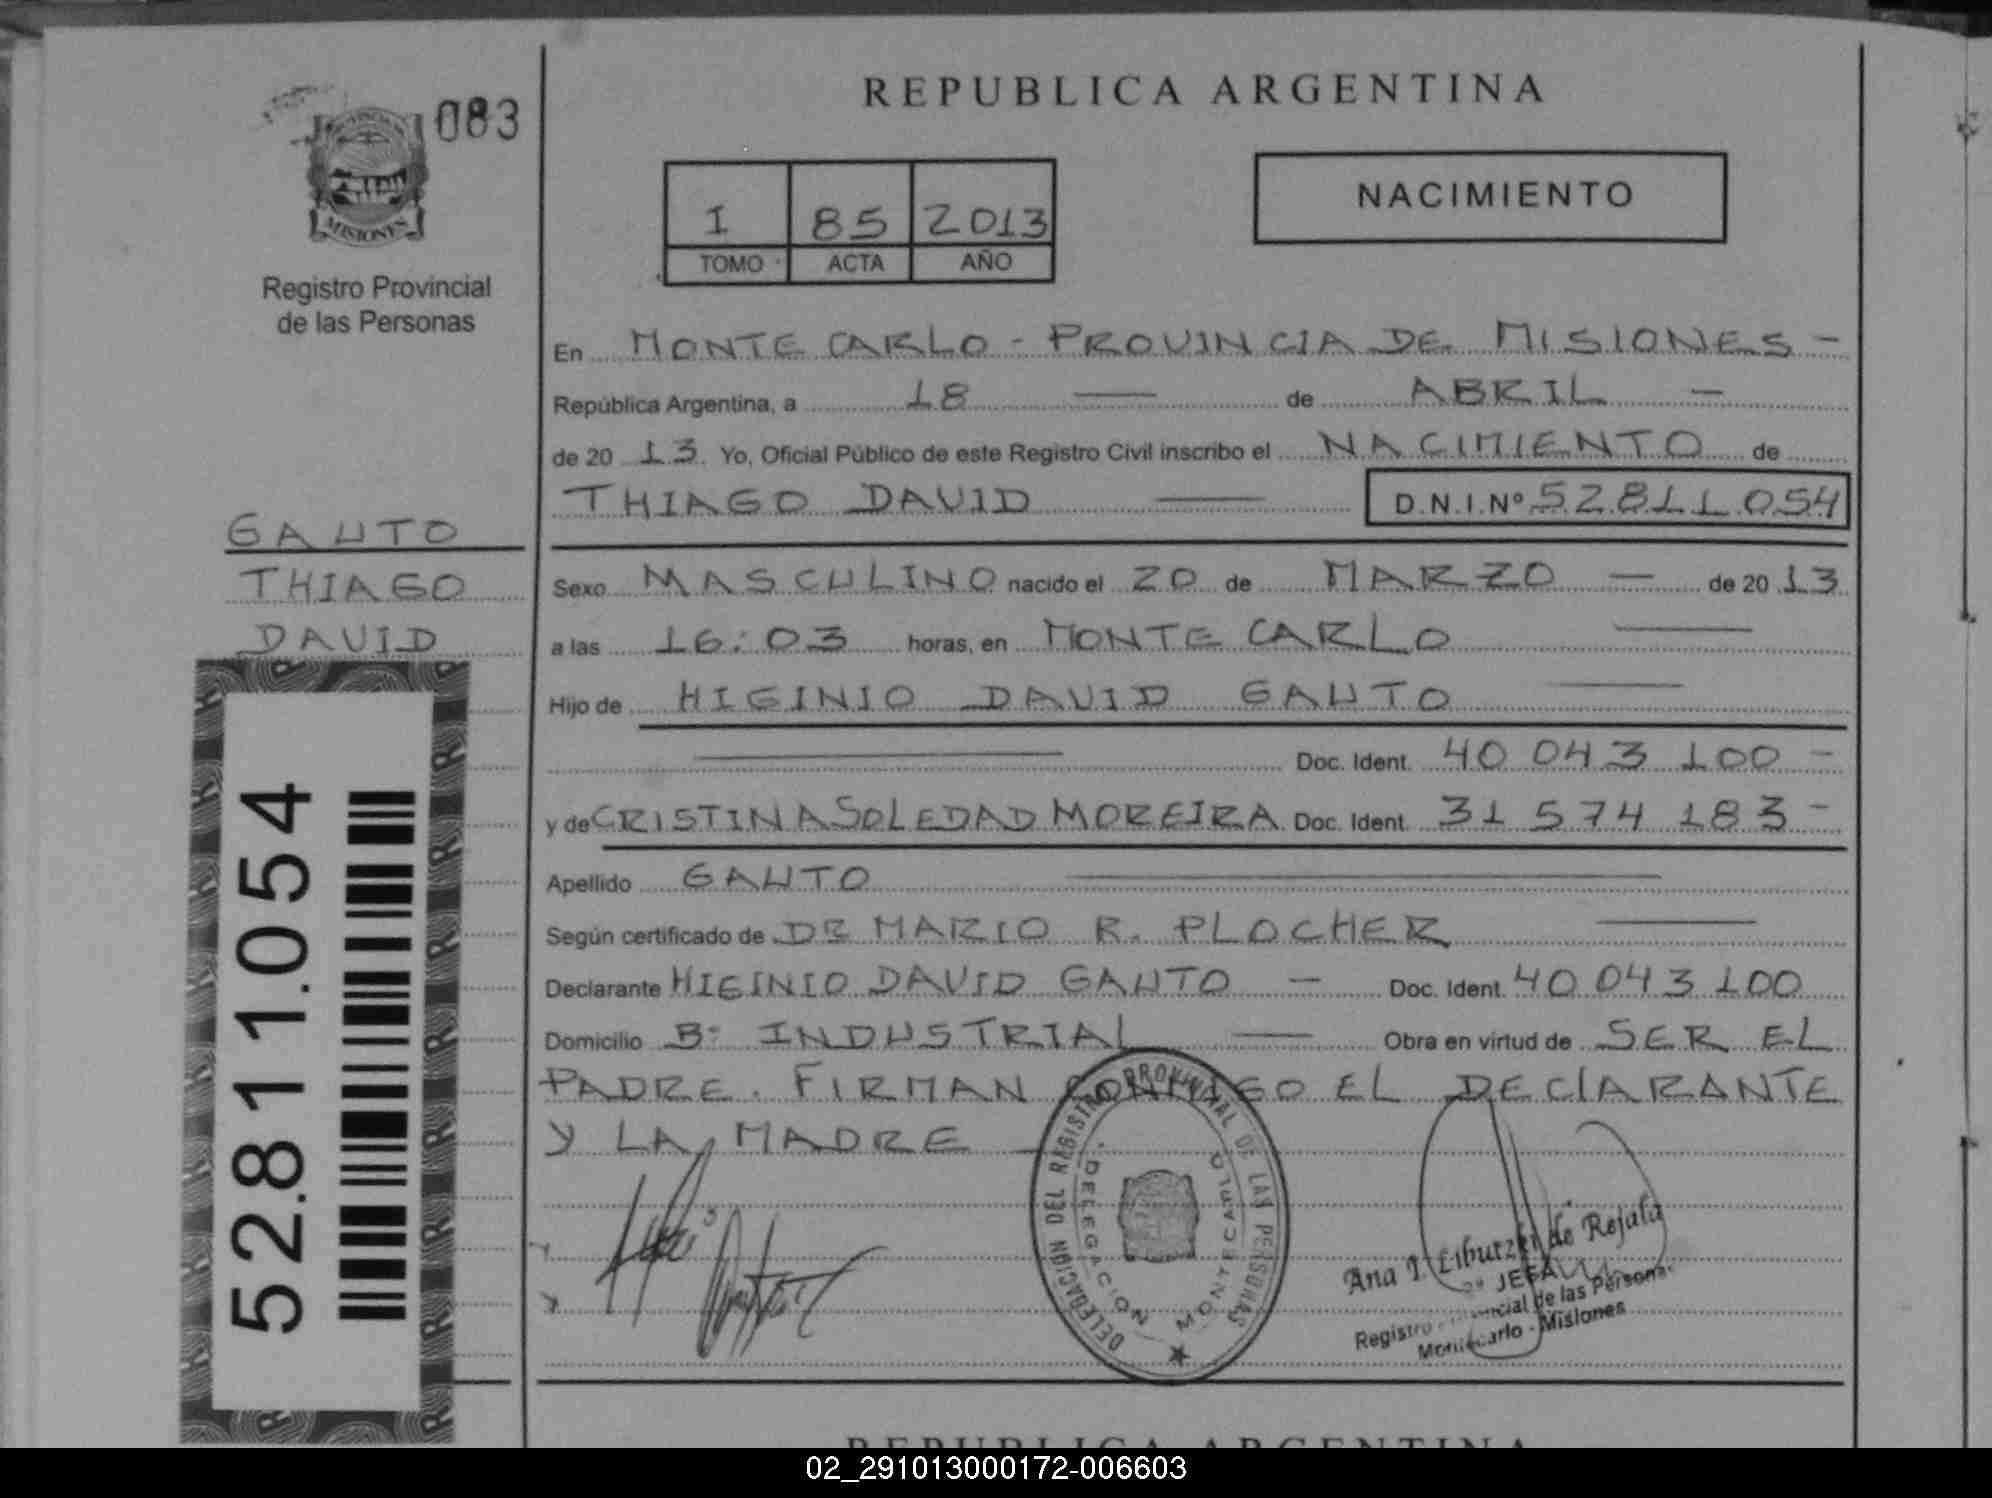 083
MISIONES
Registro Provincial
de las Personas
REPUBLICA ARGENTINA
I 85 2013
TOMO ACTA AÑO
NACIMIENTO
En MONTECARLO - PROVINCIA DE MISIONES -
República Argentina, a 18 — de ABRIL —
de 20 13 Yo, Oficial Público de este Registro Civil inscribo el NACIMIENTO de
THIAGO DAVID — D.N.I.Nº 52811054
GAUTO
THIAGO
DAVID
52.811.054
Sexo MASCULINO nacido el 20 de MARZO — de 20 13
a las 16:03 horas, en MONTECARLO —
Hijo de HIGINIO DAVID GAUTO —
— Doc. Ident. 40 043 100 -
y de CRISTINA SOLEDAD MOREIRA Doc. Ident. 31 574 183 -
Apellido GAUTO —
Según certificado de DR MARIO R. PLOCHER —
Declarante HIGINIO DAVID GAUTO — Doc. Ident. 40 043 100
Domicilio Bº INDUSTRIAL — Obra en virtud de SER EL
PADRE. FIRMAN CONMIGO EL DECLARANTE
Y LA MADRE —
DELEGACION DEL REGISTRO PROVINCIAL DE LAS PERSONAS
DELEGACION MONTECARLO
Ana I. de Rojala
JEFA
Registro Provincial de las Personas
Montecarlo - Misiones
REPUBLICA ARGENTINA
02_291013000172-006603